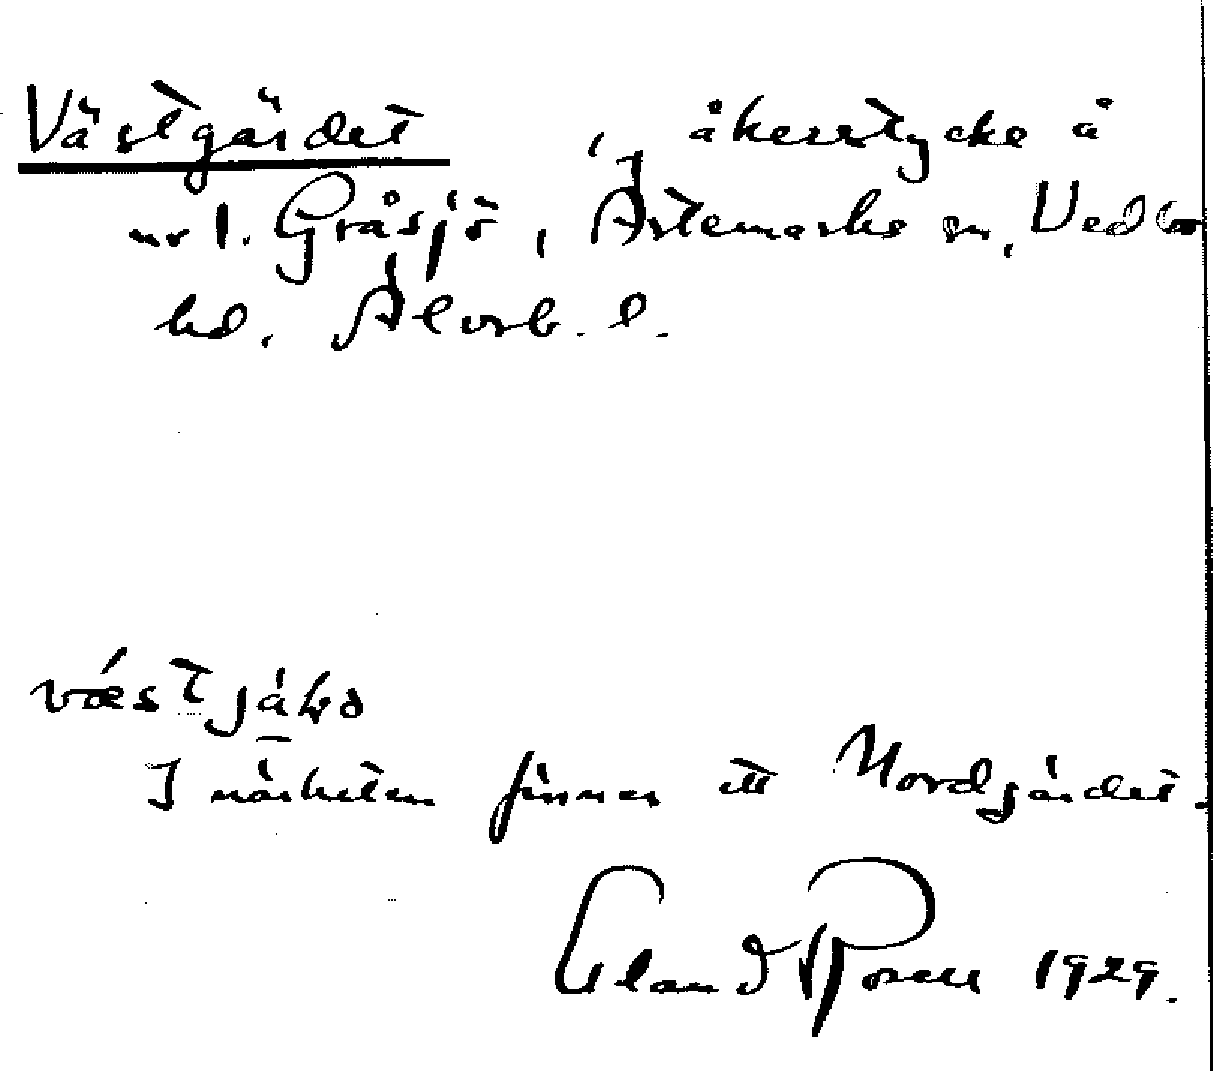 Västgärdet , åkerstycke å
nr 1. Gråsjö, Ärtemarks sn, Vedbo
hd. Älvsb. l.
I närheten finnes ett Nordgärdet.
Eland Rosell 1929.